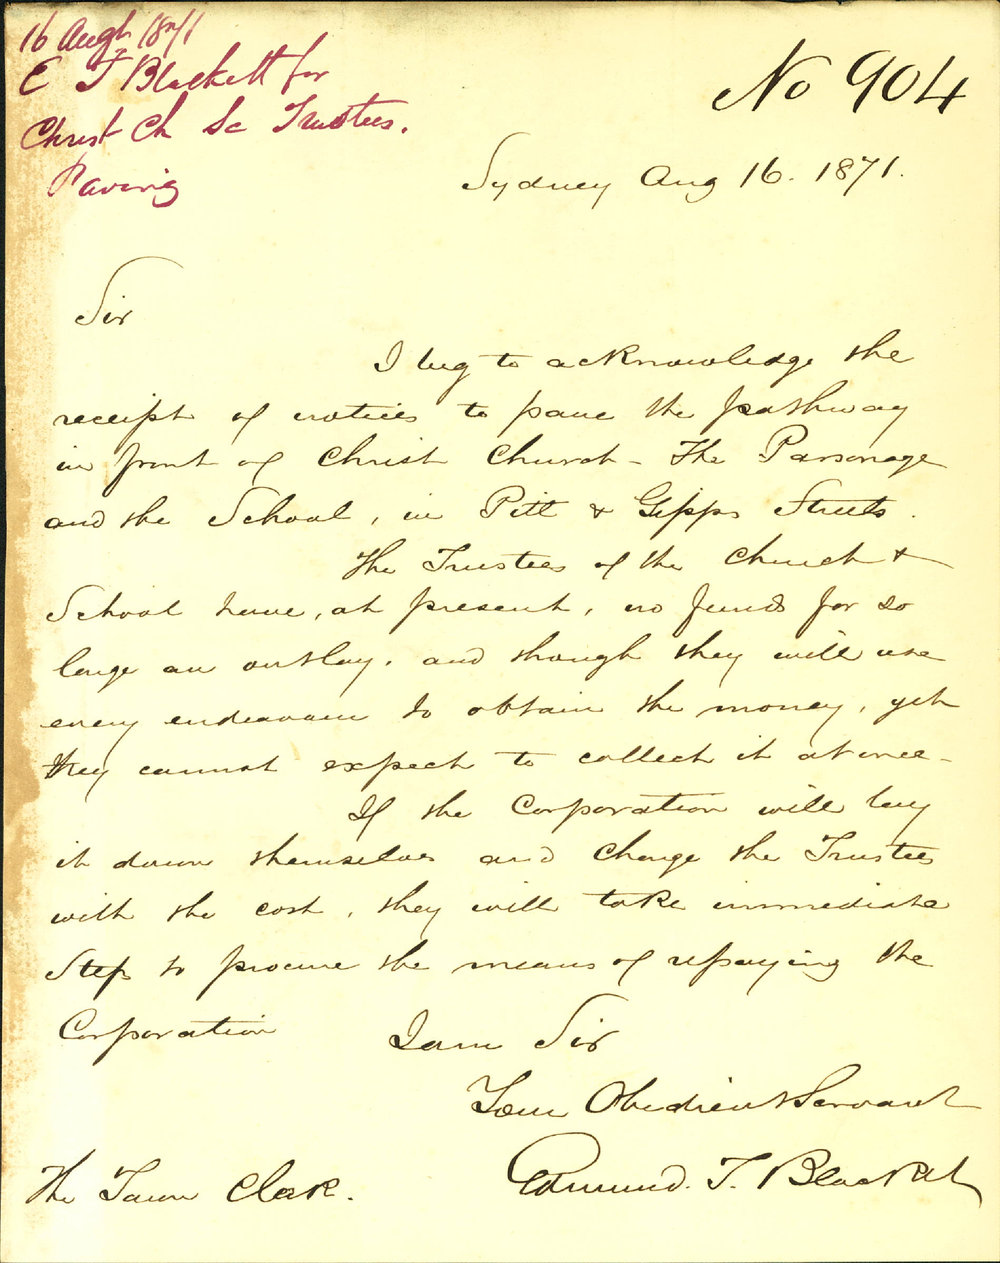 16 Augt 1871
E T Blackett for
Christ Ch Sc Trustees.
Paving
No 904
Sydney Aug 16. 1871.
Sir
I beg to acknowledge the
receipt of notices to pave the pathway
in front of Christ Church - The Parsonage
and the School, in Pitt & Gipps Streets.
The Trustees of the Church &
School have, at present, no funds for so
large an outlay. and though they will use
every endeavour to obtain the money, yet
they cannot expect to collect it at once -
If the Corporation will lay
it down themselves and charge the Trustees
with the cost, they will take immediate
Steps to procure the means of repaying the
Corporation
I am Sir
Your Obedient Servant
Edmund. T. Blackett
The Town Clerk.